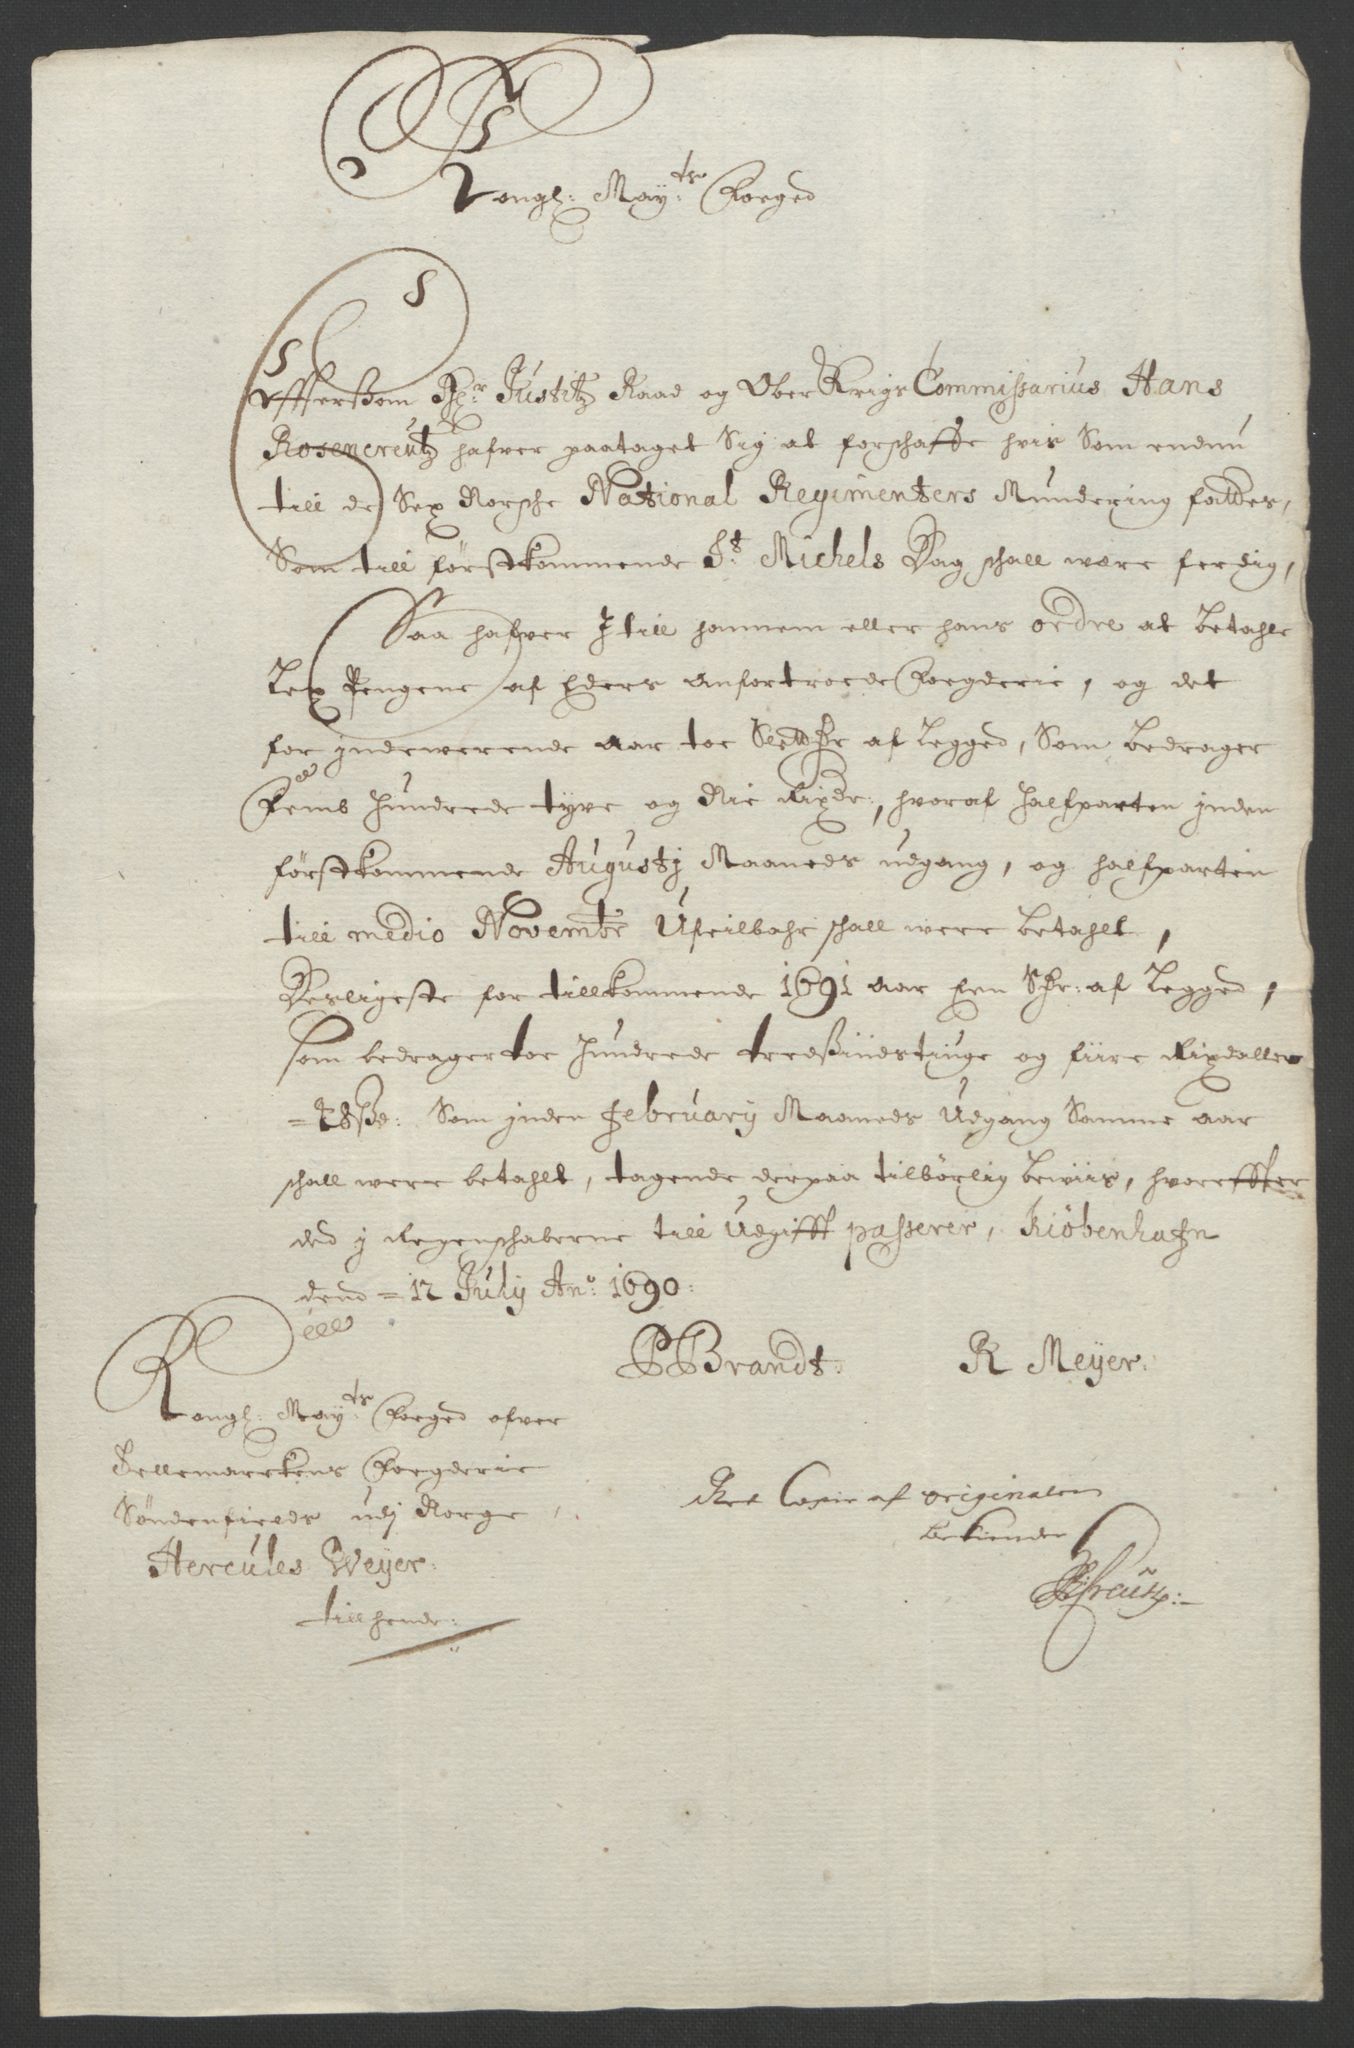 Kongl: May:ts Foeged
Effterßom Hr: Justitz Raad og Ober Krigs Commissarius Hans
Rosencreutz hafver paataget Sig at forschaffe hvis Som endnu
till de Sex Norsche National Regimenters Mundering fattes,
Som till förstkommende St: Michels Dag schall være ferdig,
Saa hafver I till hannem eller hans ordre at betahle
Lex Pengene af Eders anfortroede Foegderie, og det
for jndewerende aar toe af Legged, Som bedrager
Fembs Hundrede tyve og Nie Rixdr:, hvoraf halfparten jnden
förstkommende Augustj Maaneds udgang, og halfparten
till medio Novembr Ufeilbahr schall were betahlt,
Desligeste for tillkommende 1691 aar Een af Legged,
som bedrager toe Hundrede tredßindstiuge og fiire Rixdaller
Som jnden February Maaneds Udgang Samme aar
schall were betahlt, tagende derpaa tilbörlig beviis, hvoreffter
ded j Regenschaberne till Udgifft passerer, Kiöbenhafn
dend = 12 July An: 1690:
PBrandt: R Meyer:
Till
Kongl: May:ts Foeged ofver
Tellemarckens Foegderie
Söndenfieeds udj Norge,
Hercules Weyer:
till hende:
Ret Copie af originalen
bekiender